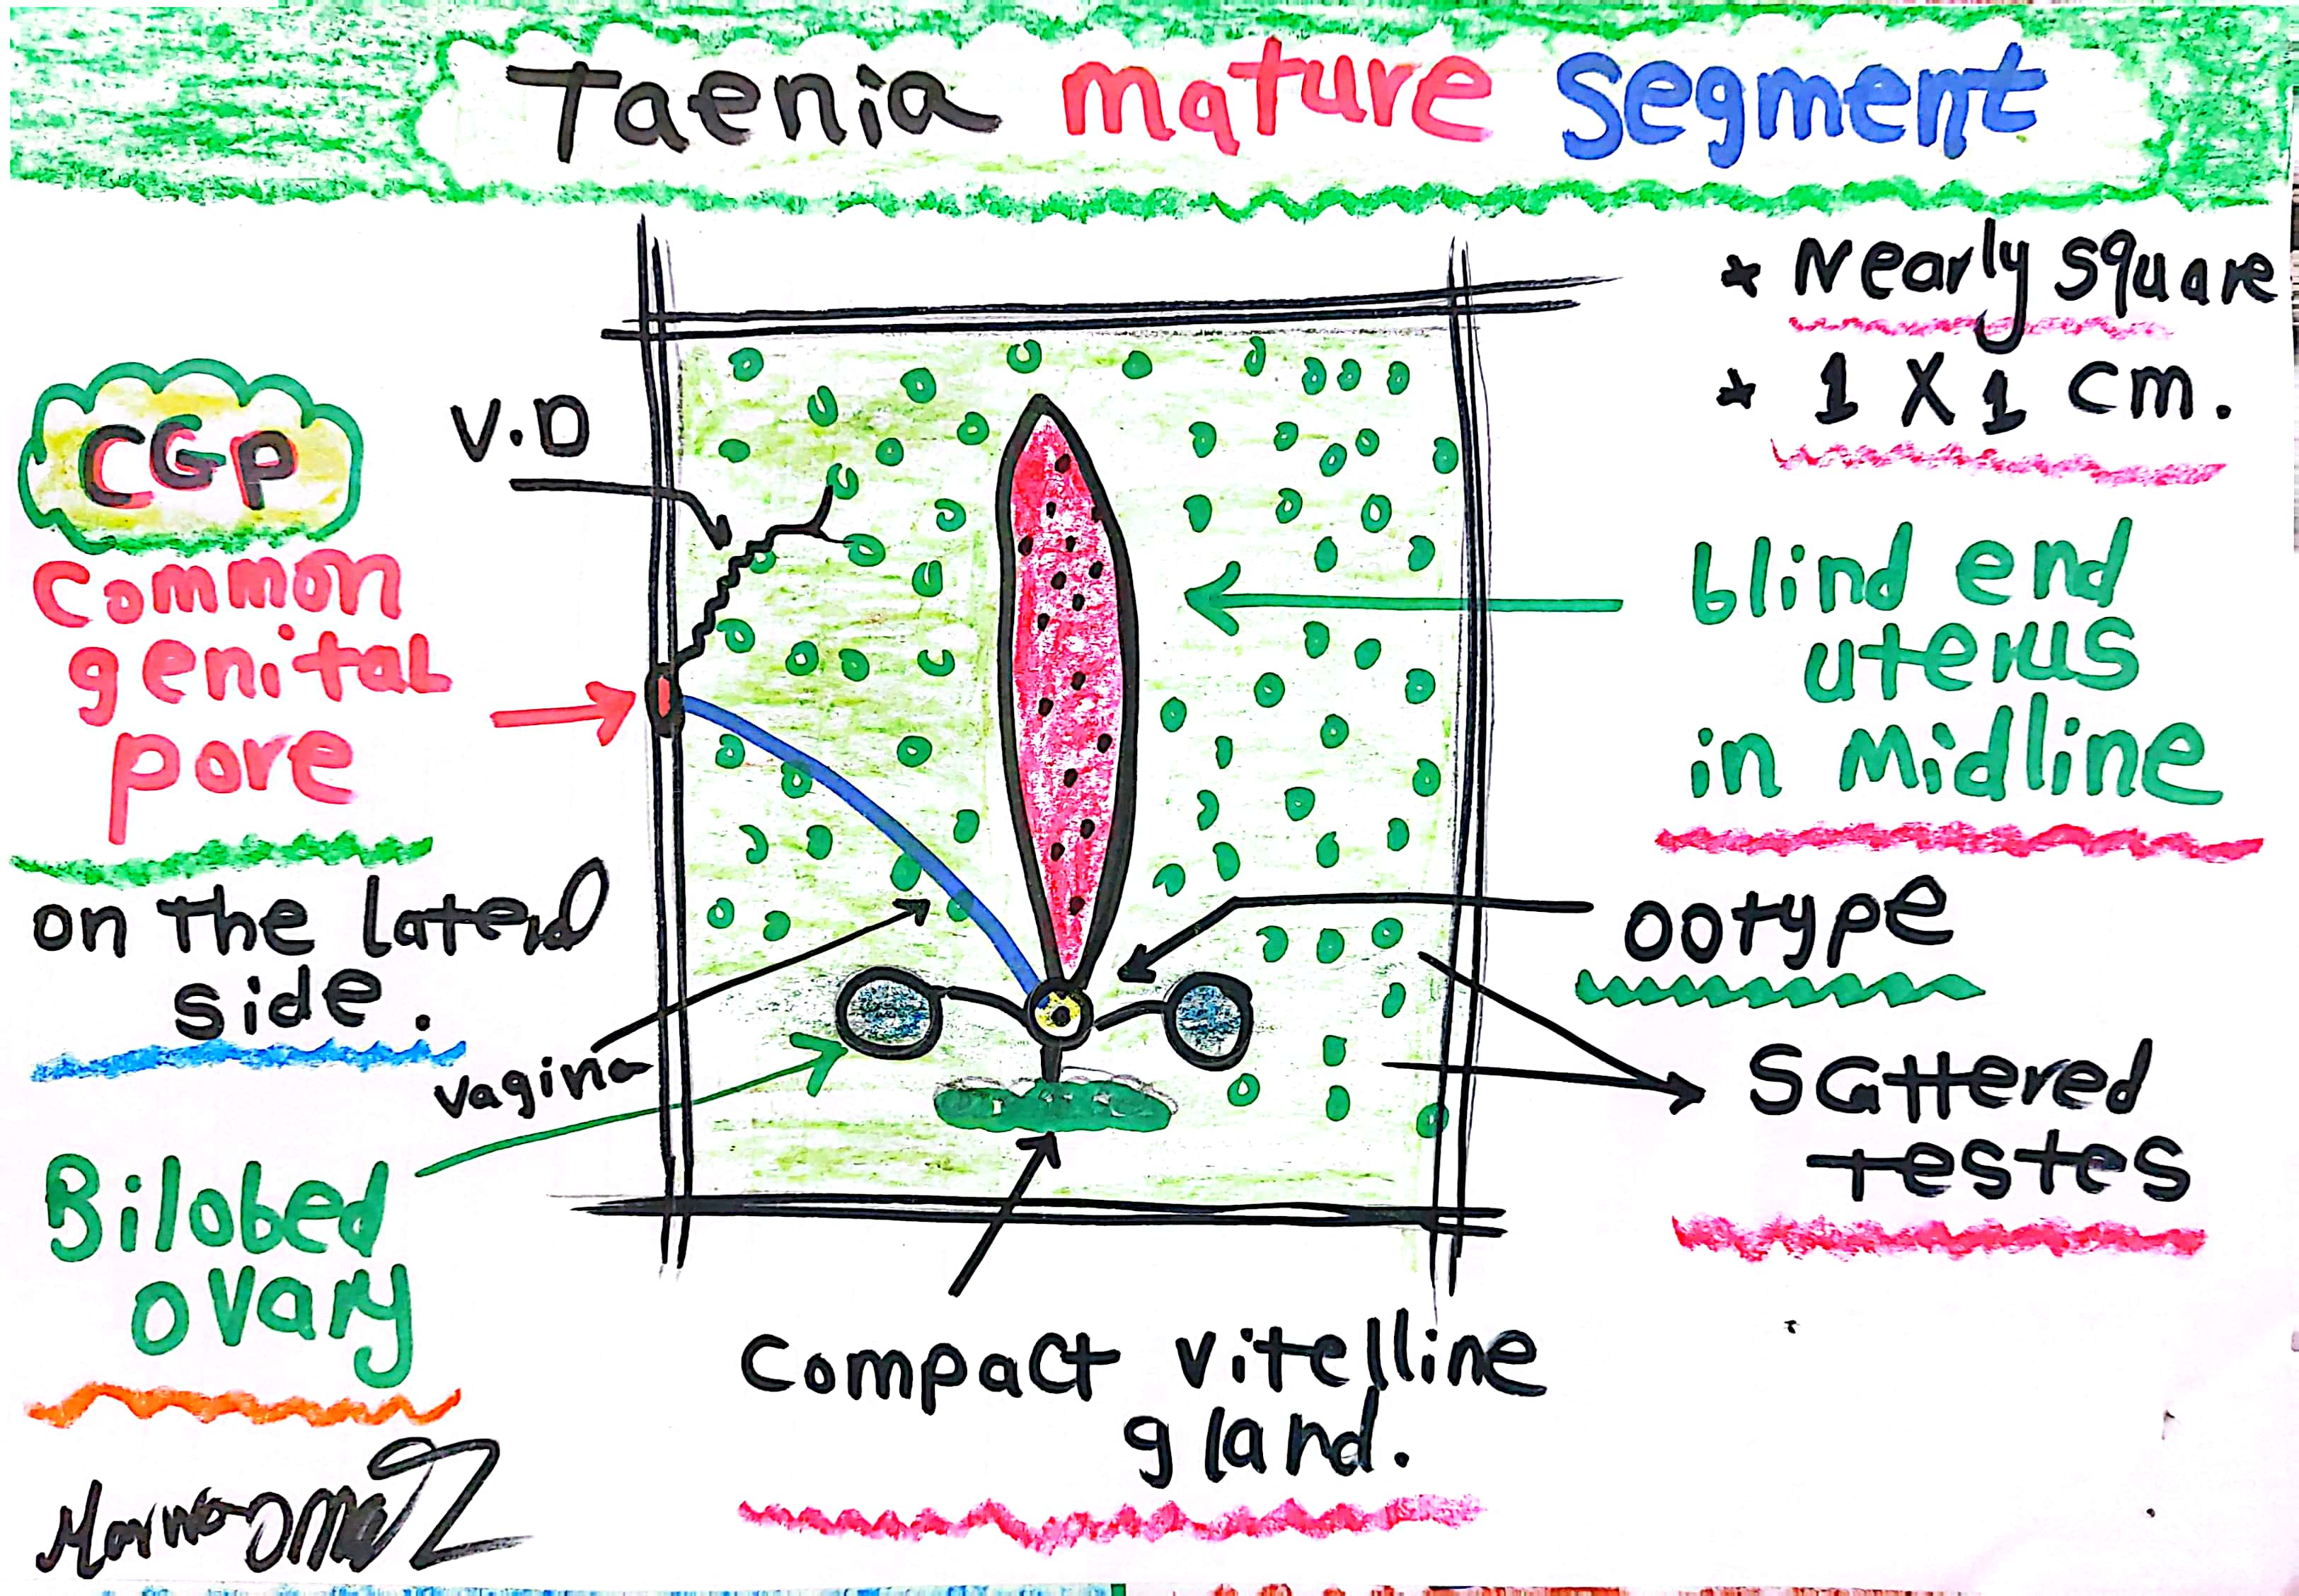 Taenia mature segment
* Nearly square
* 1 X 1 cm.
V.D
CGP
Common
genital
pore
on the lateral
side.
blind end
uterus
in Midline
ootype
Scattered
testes
vagina
Bilobed
ovary
Compact vitelline
gland.